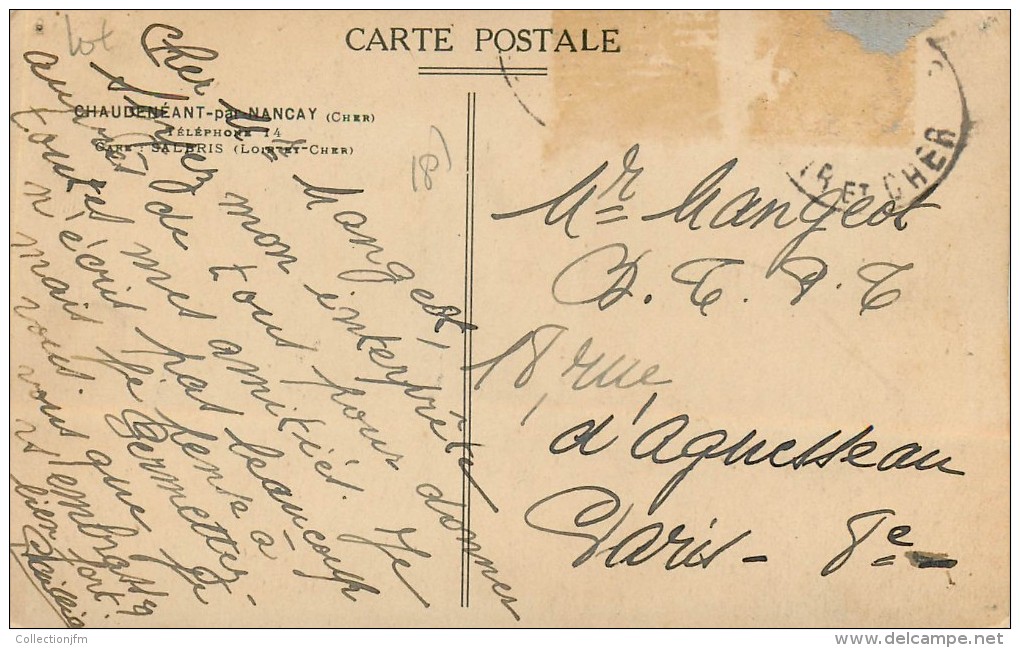 CARTE POSTALE
lot
CHAUDENÉANT-par-NANÇAY (CHER)
TÉLÉPHONE 14
GARE : SALBRIS (LOIR-ET-CHER)
18
Cher Mr Mangeot,
Soyez mon interprète
auprès de tous pour donner
toutes mes amitiés. Je
n'écris pas beaucoup
mais je pense à
vous. Permettez-
vous que je
vous embrasse
bien fort.
IR ET CHER
Mr Mangeot
D. T. P. T
18, rue
d'Aguesseau
Paris - 8e -
Collectionjfm
delcampe.net